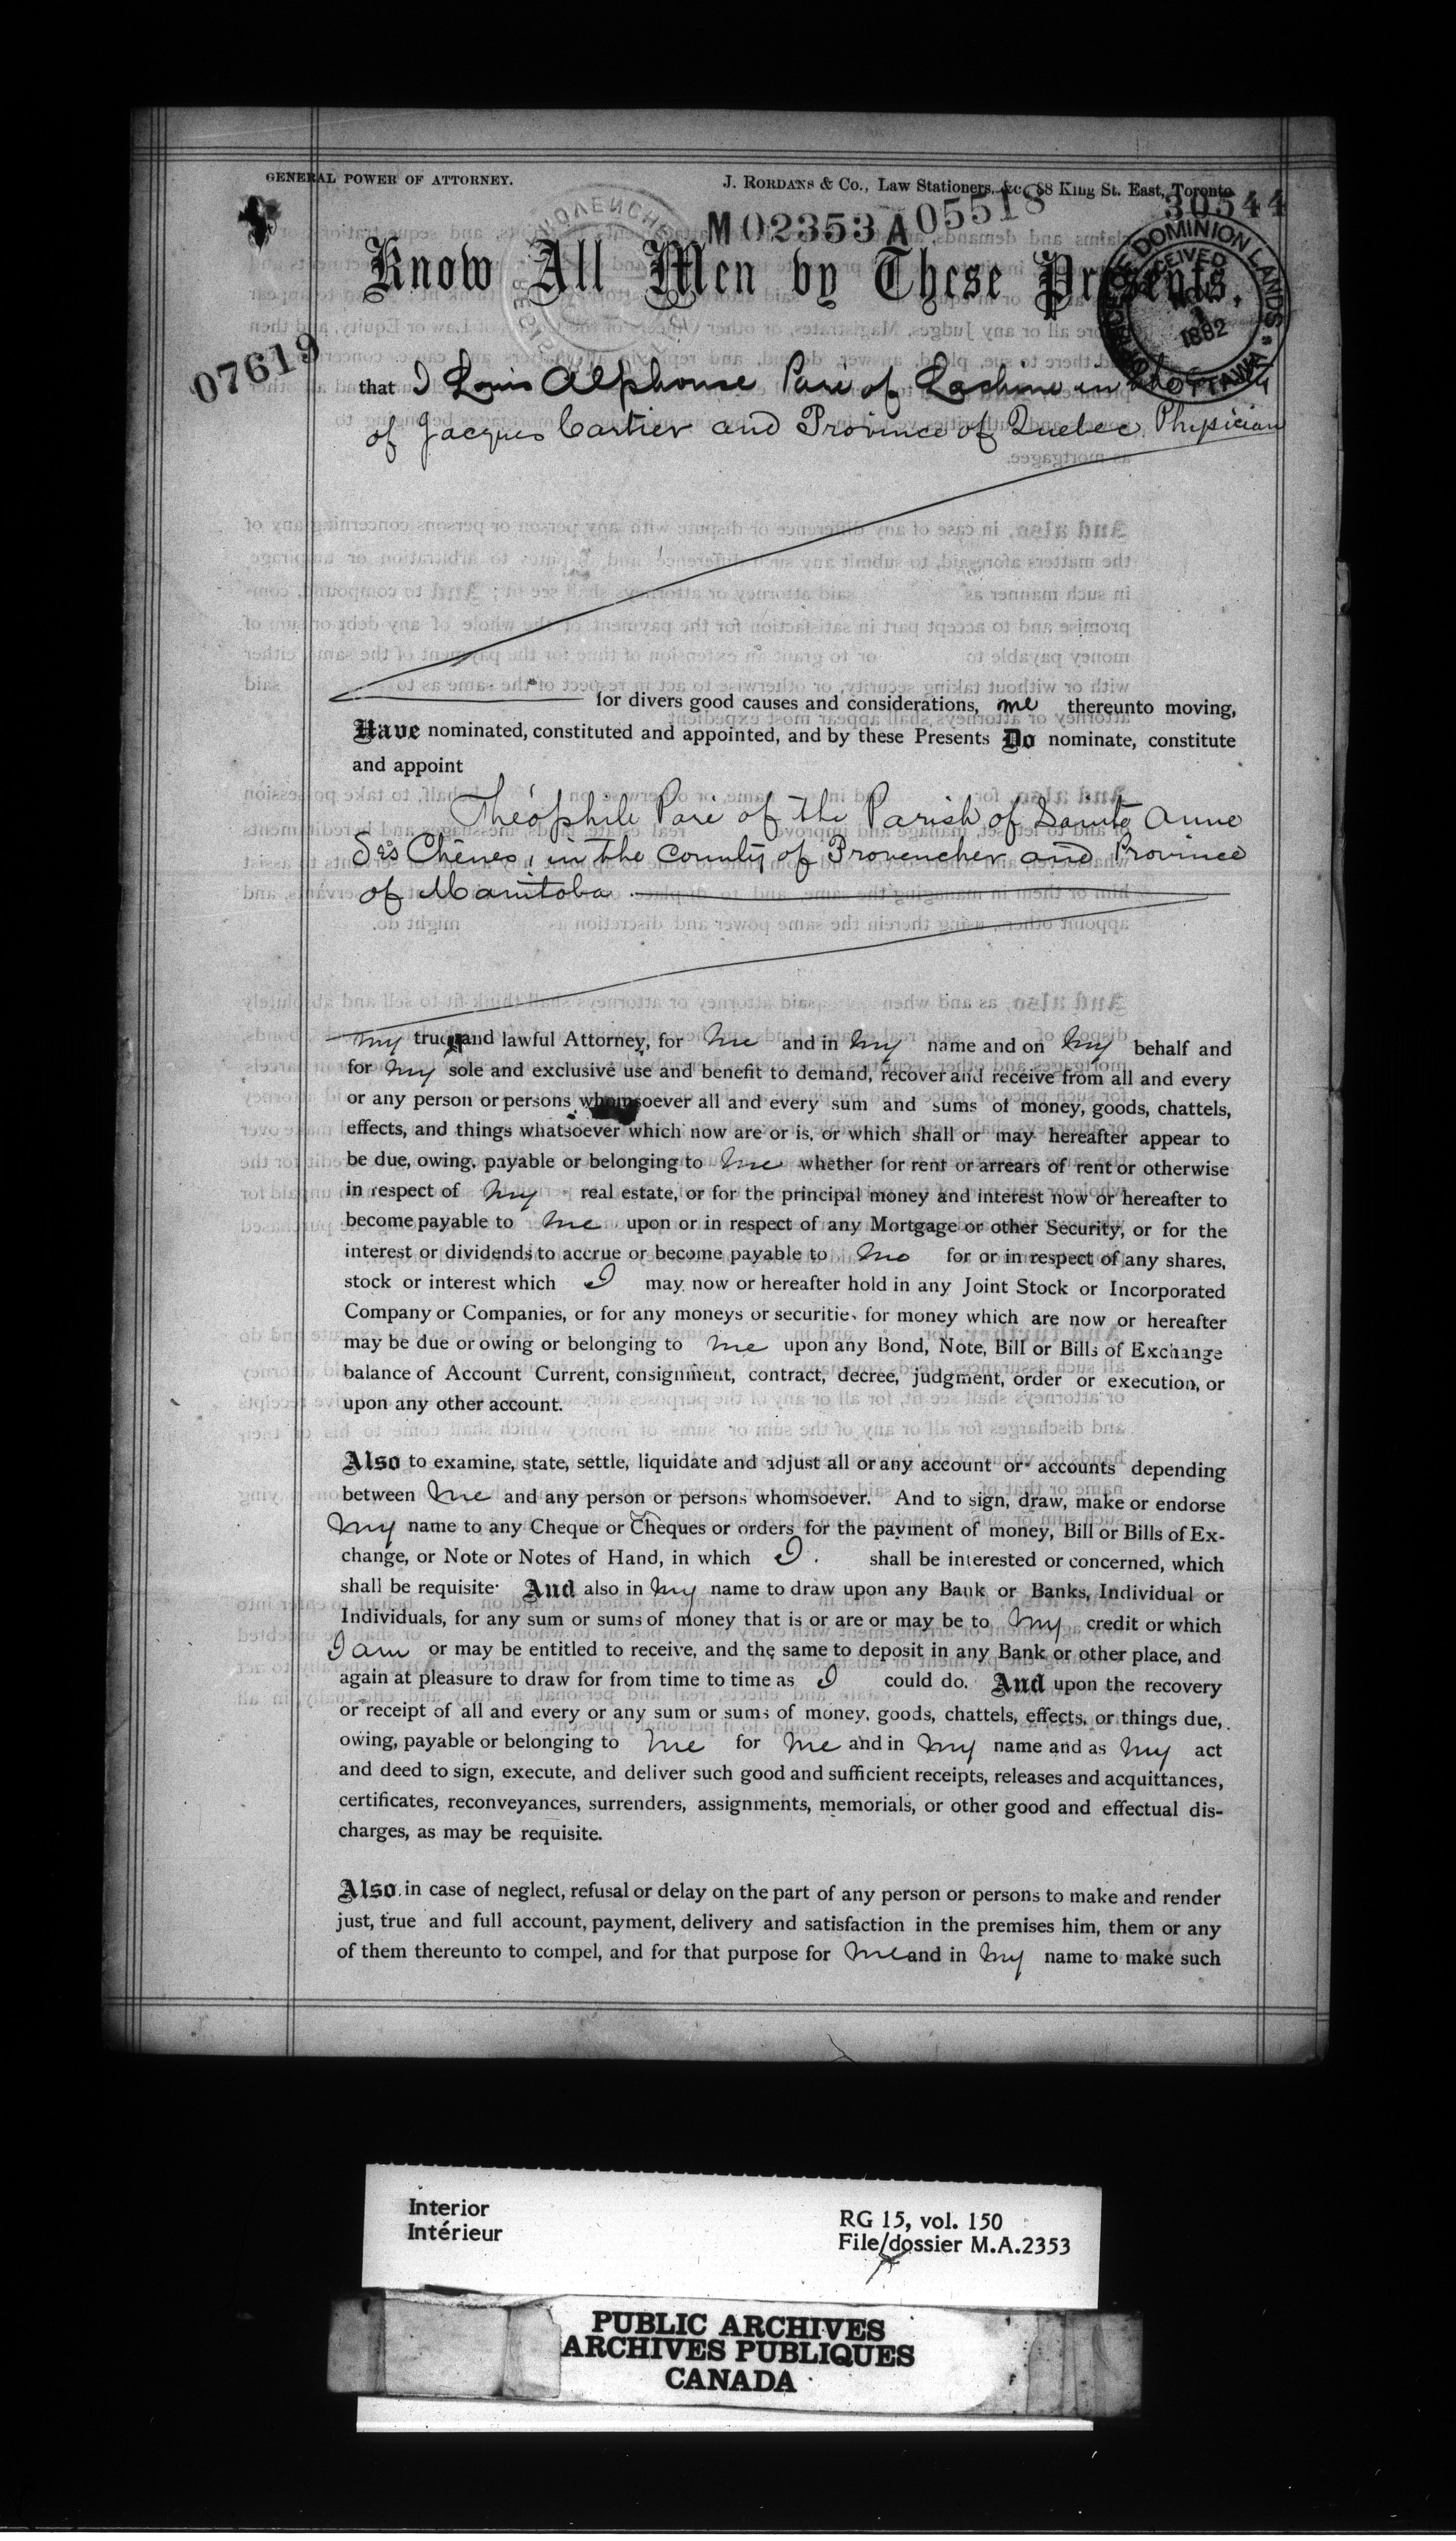 GENERAL POWER OF ATTORNEY.
J. RORDANS & Co., Law Stationers, &c., 88 King St. East, Toronto
30544
M02353A05518
Know All Men by These Presents,
DOMINION LANDS
RECEIVED
1
1882
OTTAWA
07619
that I Louis Alphonse Paré of Lachine in the
of Jacques Cartier and Province of Quebec, Physician
for divers good causes and considerations, me thereunto moving,
Have nominated, constituted and appointed, and by these Presents Do nominate, constitute
and appoint
Théophile Paré of the Parish of Sainte Anne
Des Chênes, in the County of Provencher and Province
of Manitoba.
my true and lawful Attorney, for me and in my name and on my behalf and
for my sole and exclusive use and benefit to demand, recover and receive from all and every
or any person or persons whomsoever all and every sum and sums of money, goods, chattels,
effects, and things whatsoever which now are or is, or which shall or may hereafter appear to
be due, owing, payable or belonging to me whether for rent or arrears of rent or otherwise
in respect of my real estate, or for the principal money and interest now or hereafter to
become payable to me upon or in respect of any Mortgage or other Security, or for the
interest or dividends to accrue or become payable to me for or in respect of any shares,
stock or interest which I may now or hereafter hold in any Joint Stock or Incorporated
Company or Companies, or for any moneys or securities for money which are now or hereafter
may be due or owing or belonging to me upon any Bond, Note, Bill or Bills of Exchange
balance of Account Current, consignment, contract, decree, judgment, order or execution, or
upon any other account.
Also to examine, state, settle, liquidate and adjust all or any account or accounts depending
between me and any person or persons whomsoever. And to sign, draw, make or endorse
my name to any Cheque or Cheques or orders for the payment of money, Bill or Bills of Ex-
change, or Note or Notes of Hand, in which I. shall be interested or concerned, which
shall be requisite. And also in my name to draw upon any Bank or Banks, Individual or
Individuals, for any sum or sums of money that is or are or may be to my credit or which
I am or may be entitled to receive, and the same to deposit in any Bank or other place, and
again at pleasure to draw for from time to time as I could do. And upon the recovery
or receipt of all and every or any sum or sums of money, goods, chattels, effects, or things due,
owing, payable or belonging to me for me and in my name and as my act
and deed to sign, execute, and deliver such good and sufficient receipts, releases and acquittances,
certificates, reconveyances, surrenders, assignments, memorials, or other good and effectual dis-
charges, as may be requisite.
Also, in case of neglect, refusal or delay on the part of any person or persons to make and render
just, true and full account, payment, delivery and satisfaction in the premises him, them or any
of them thereunto to compel, and for that purpose for me and in my name to make such
Interior
Intérieur
RG 15, vol. 150
File/dossier M.A.2353
PUBLIC ARCHIVES
ARCHIVES PUBLIQUES
CANADA